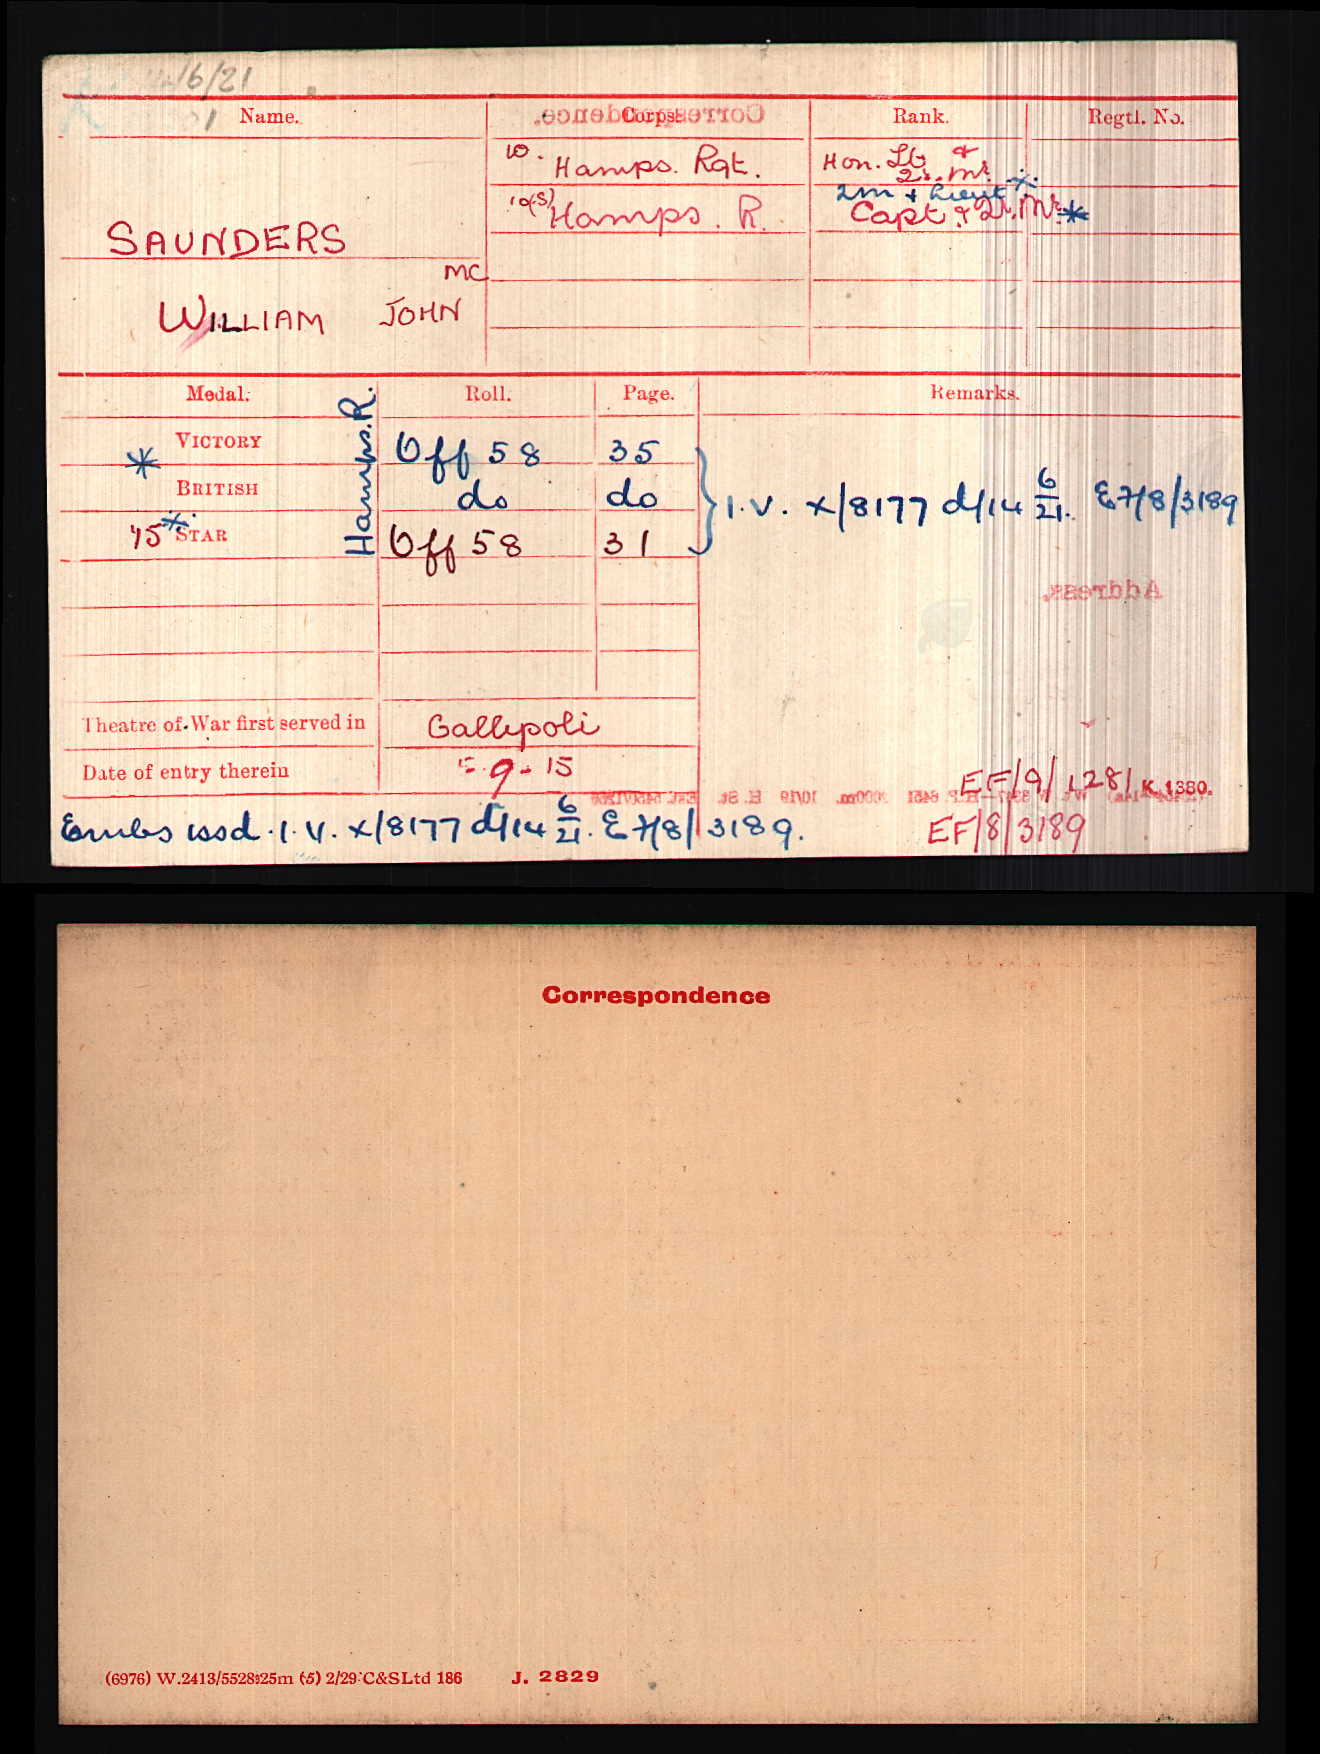 16/21
Name. Corps. Rank. Regtl. No.
Correspondence.
10. Hamps. Rgt. Hon. Lt &
Qr. Mr.
2m & Lieut
10(S) Hamps. R. Capt & Qr. Mr.
SAUNDERS
MC
WILLIAM JOHN
Medal. Roll. Page. Remarks.
Hamps. R.
VICTORY Off 58 35
BRITISH do do I.V. X/8177 d/14 6/21. E 7/8/3189
'15 STAR Off 58 31
Address.
Theatre of War first served in Gallipoli
Date of entry therein 5.9.15
EF/9/1281 K. 1380.
Embs issd. I.V. X/8177 d/14 6/21. E 7/8/3189.
EF/8/3189
Correspondence
(6976) W.2413/5528 25m (5) 2/29 C&SLtd 186 J. 2829